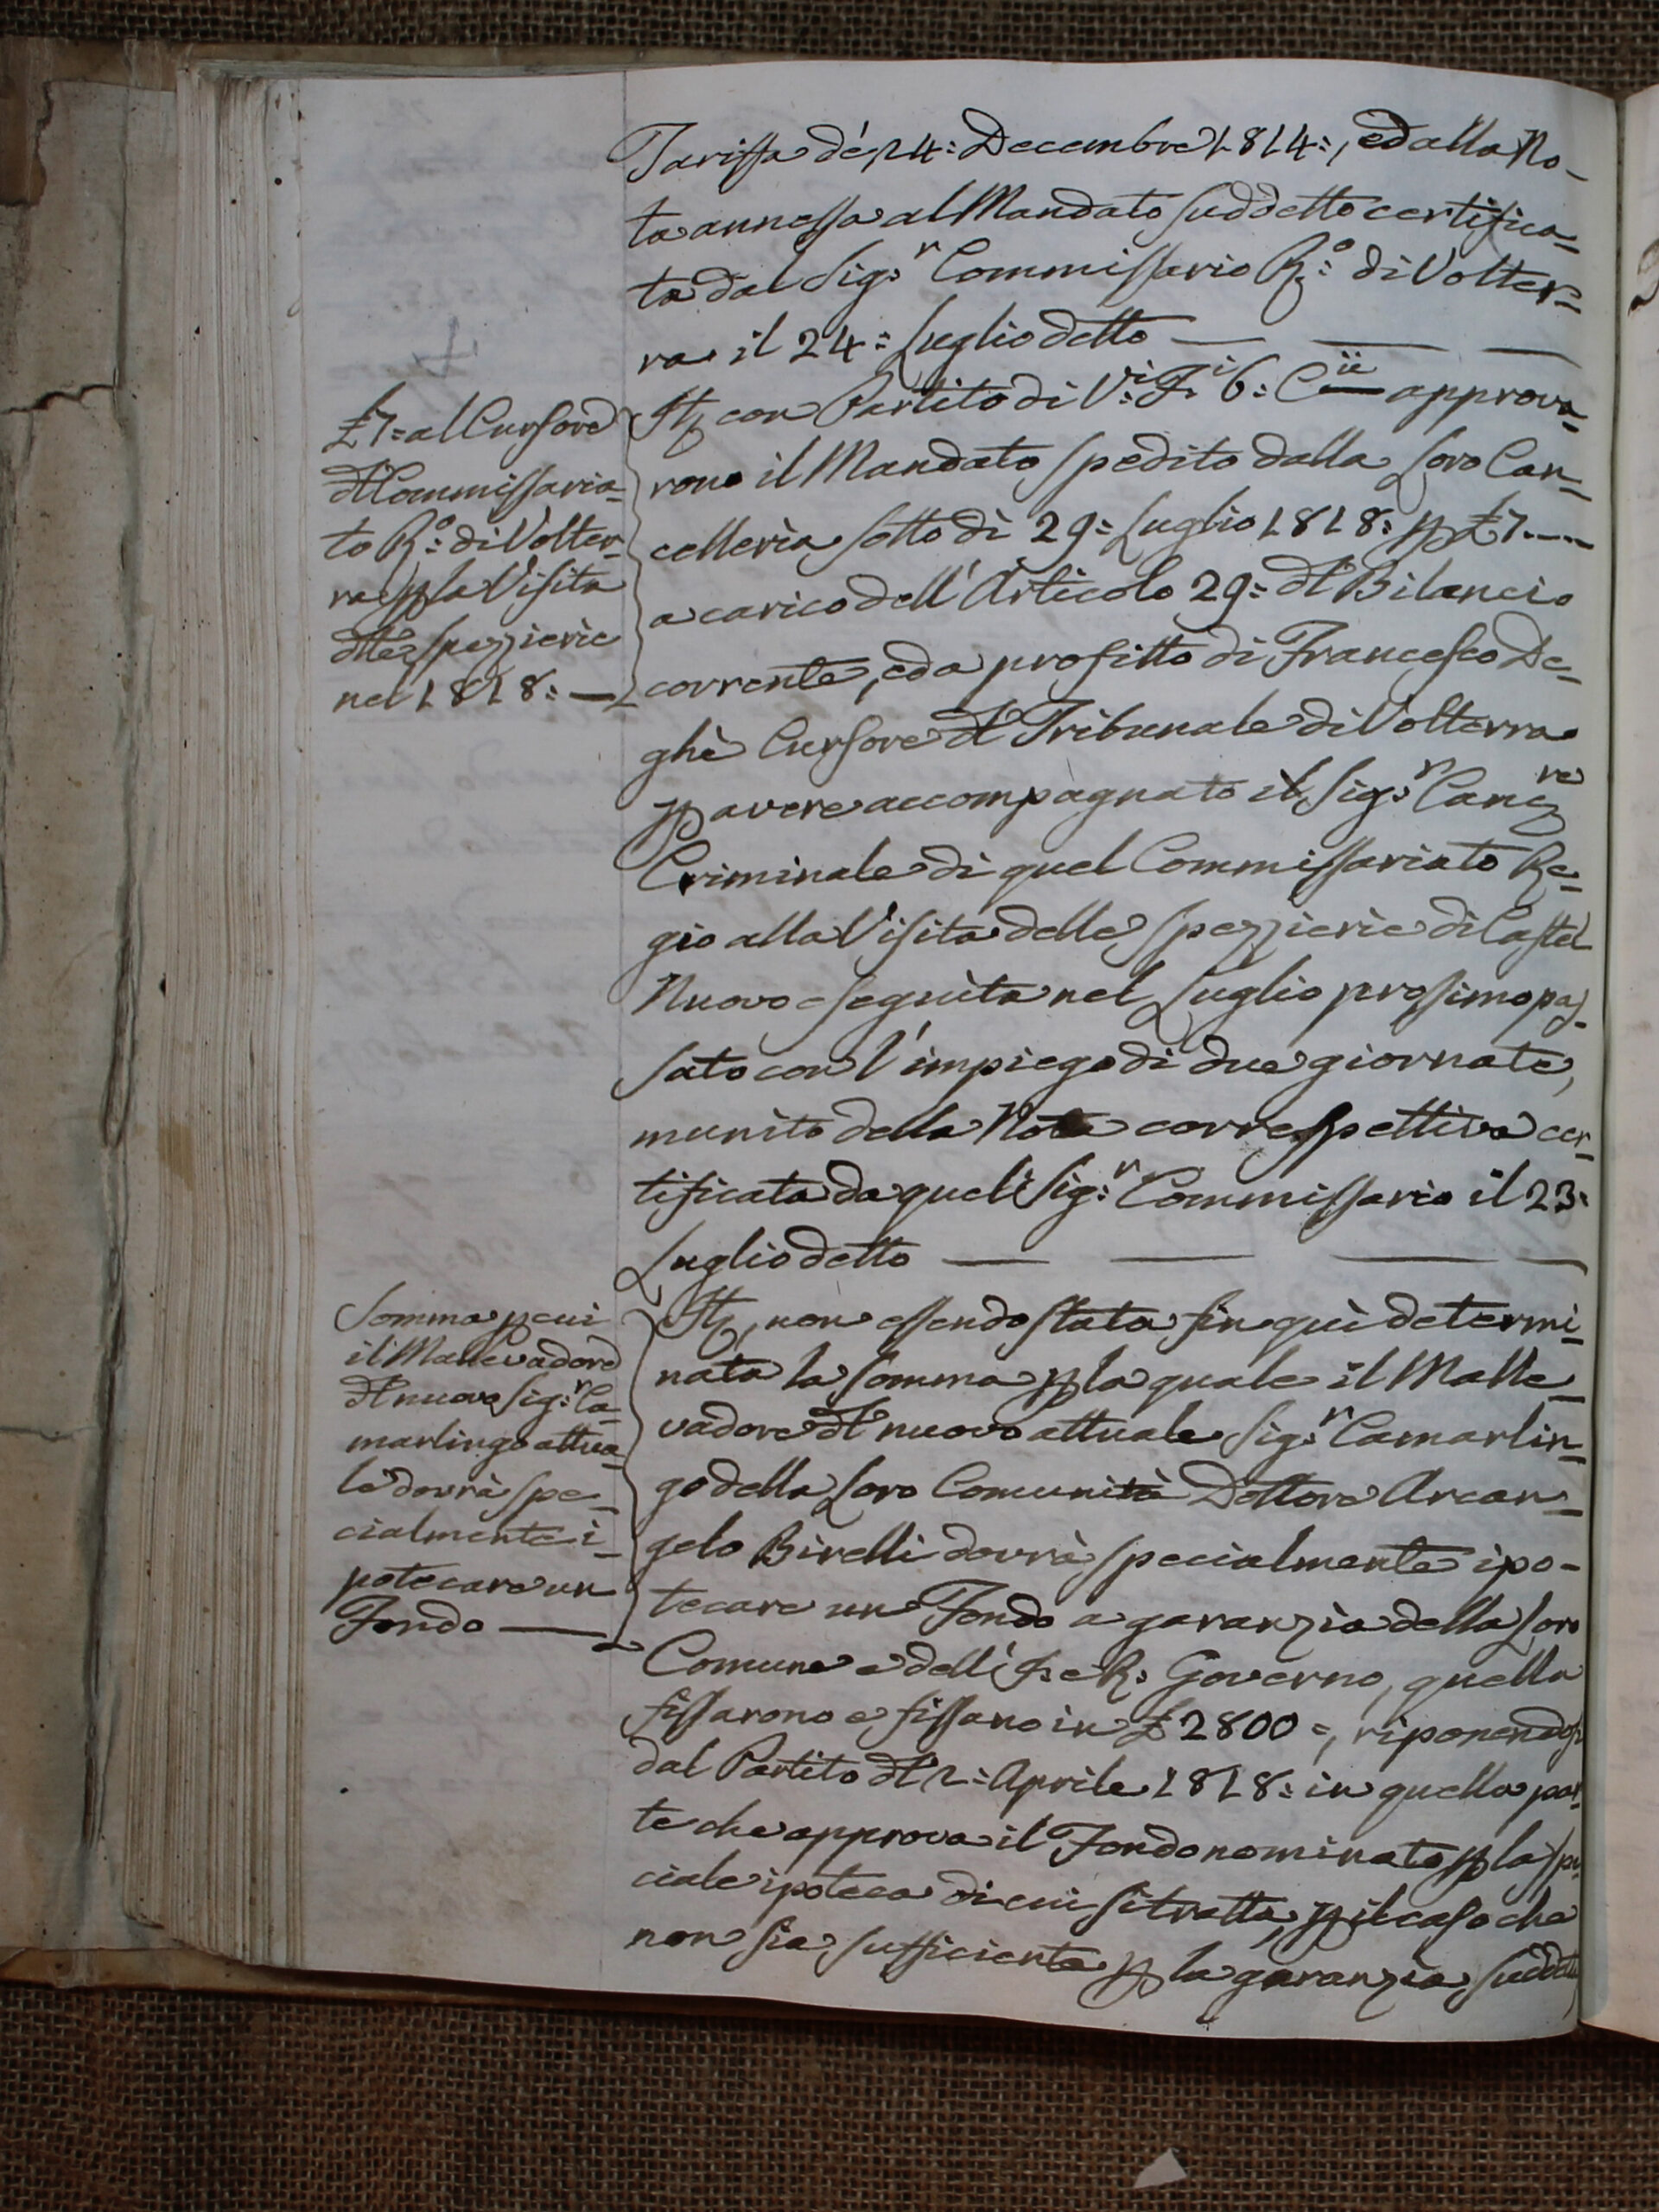 Tariffa de' 24: Decembre 1814:, ed alla No-
ta annessa al Mandato suddetto certifica-
ta dal Sig:r Commissario R:o di Volter-
ra il 24: Luglio detto — — —
£7: al Cursore
dl Commissaria-
to R:o di Volter-
ra p la Visita
dlle Spezierie
nel 1818: —
Itz con Partito di V:i F:i 6: C:ii approva-
rono il Mandato spedito dalla Loro Can-
celleria sotto dì 29: Luglio 1818: p £7.—
a carico dell'Articolo 29: dl Bilancio
corrente, ed a profitto di Francesco De-
ghi Cursore dl Tribunale di Volterra
p avere accompagnato il Sig:r Canc:re
Criminale di quel Commissariato Re-
gio alla Visita delle Spezierie di Castel
Nuovo eseguita nel Luglio prossimo pas-
sato con l'impiego di due giornate,
munito della Nota correspettiva cer-
tificata da quel Sig:r Commissario il 23:
Luglio detto — — — —
Somma p cui
il Mallevadore
dl nuovo Sig:r Ca-
marlingo attua-
le dovrà spe-
cialmente i-
potecare un
Fondo —
Itz, non essendo stata fin quì determi-
nata la somma p la quale il Malle-
vadore dl nuovo attuale Sig:r Camarlin-
go della Loro Comunità Dottore Arcan-
gelo Birelli dovrà specialmente ipo-
tecare un Fondo a garanzia della Loro
Comune e dell'I: e R: Governo, quella
fissarono e fissano in £2800:, riponendosi
dal Partito dl 2: Aprile 1818: in quella par-
te che approva il Fondo nominato p la spe-
ciale ipoteca di cui si tratta, p il caso che
non sia sufficiente p la garanzia suddetta